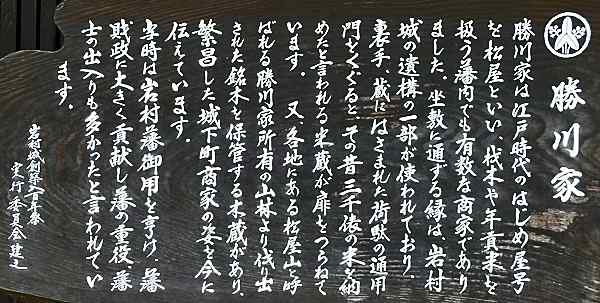 勝川家
勝川家は江戸時代のはじめ屋号
を松屋といい、材木や年貢米を
扱う藩内でも有数な商家であり
ました。坐敷に通ずる縁は、岩村
城の遺構の一部が使われており、
裏手、蔵にはさまれた荷駄の通用
門をくぐると、その昔三千俵の米を納
めたと言われる米蔵が扉をつらねて
います。又、各地にある松屋山と呼
ばれる勝川家所有の山林より伐り出
された銘木を保管する木蔵があり、
繁昌した城下町商家の姿を今に
伝えています。
当時は岩村藩御用を享け、藩
財政に大きく貢献し藩の重役、藩
士の出入りも多かったと言われてい
ます。
岩村城創築八百年祭
実行委員会建之